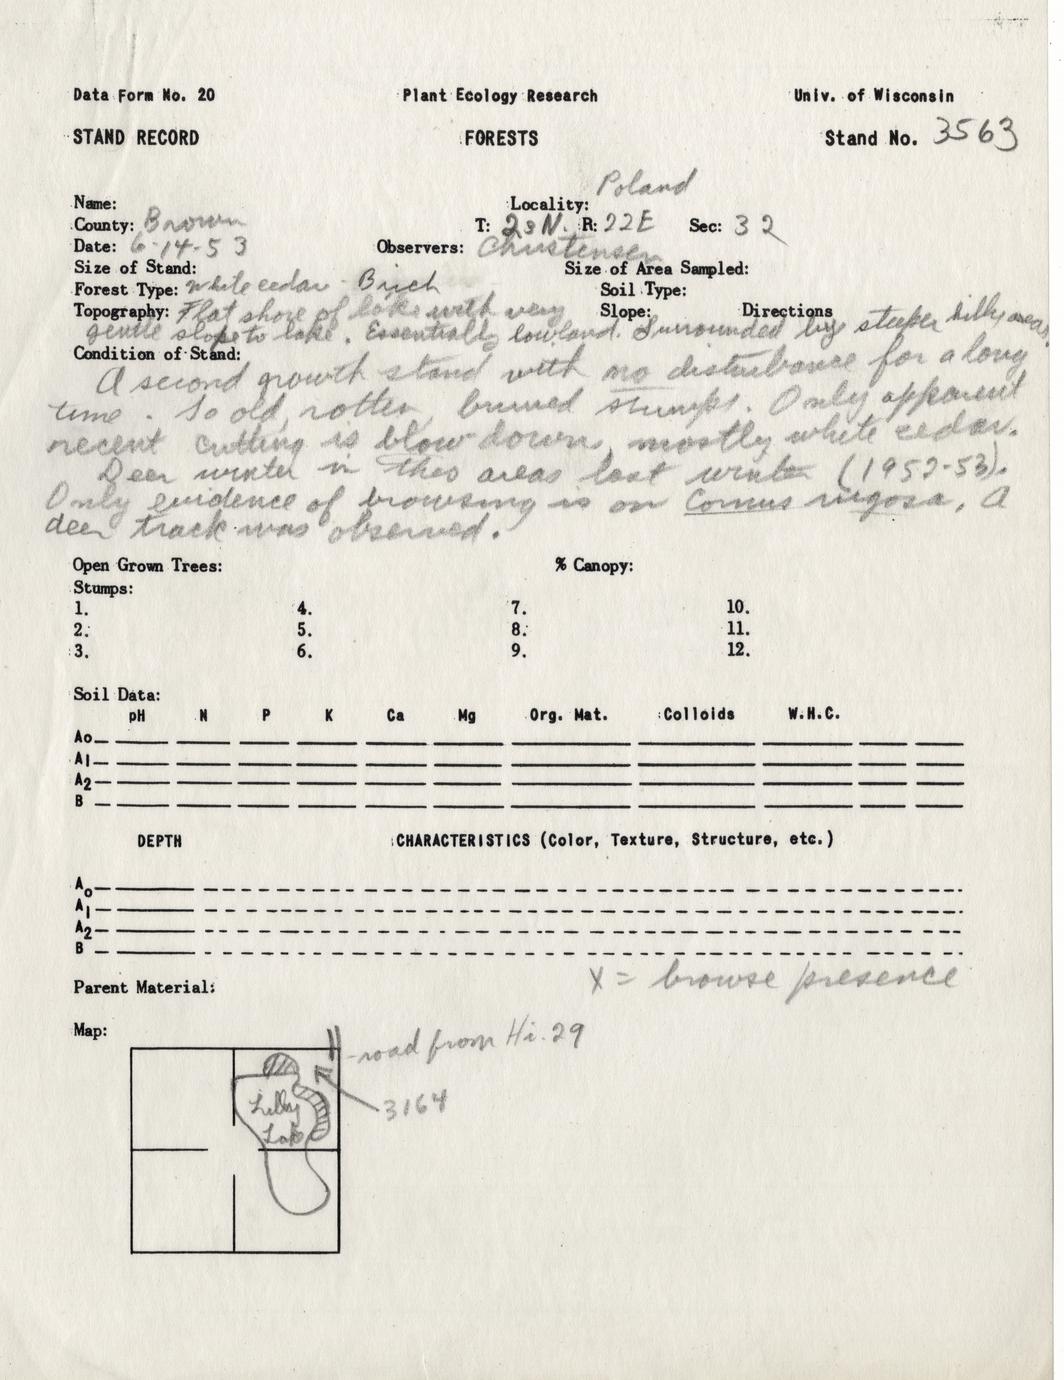 Data Form No. 20 Plant Ecology Research Univ. of Wisconsin
STAND RECORD FORESTS Stand No. 3563
Name: Locality: Poland
County: Brown T: 23N. R: 22E Sec: 32
Date: 6-14-53 Observers: Christensen
Size of Stand: Size of Area Sampled:
Forest Type: White cedar - Birch Soil Type:
Topography: Flat shore of lake with very Slope: Directions
gentle slope to lake. Essentially lowland. Surrounded by steeper hilly areas.
Condition of Stand:
A second growth stand with no disturbance for a long
time. So old, rotten, burned stumps. Only apparent
recent cutting is blow down, mostly white cedar.
Deer winter in this areas last winter (1952-53).
Only evidence of browsing is on Cornus rugosa. A
deer track was observed.
Open Grown Trees: % Canopy:
Stumps:
1. 4. 7. 10.
2. 5. 8. 11.
3. 6. 9. 12.
Soil Data:
pH N P K Ca Mg Org. Mat. Colloids W.H.C.
Ao
A1
A2
B
DEPTH CHARACTERISTICS (Color, Texture, Structure, etc.)
Ao
A1
A2
B
X = browse presence
Parent Material:
Map:
road from Hi. 29
3164
Lilly
Lake